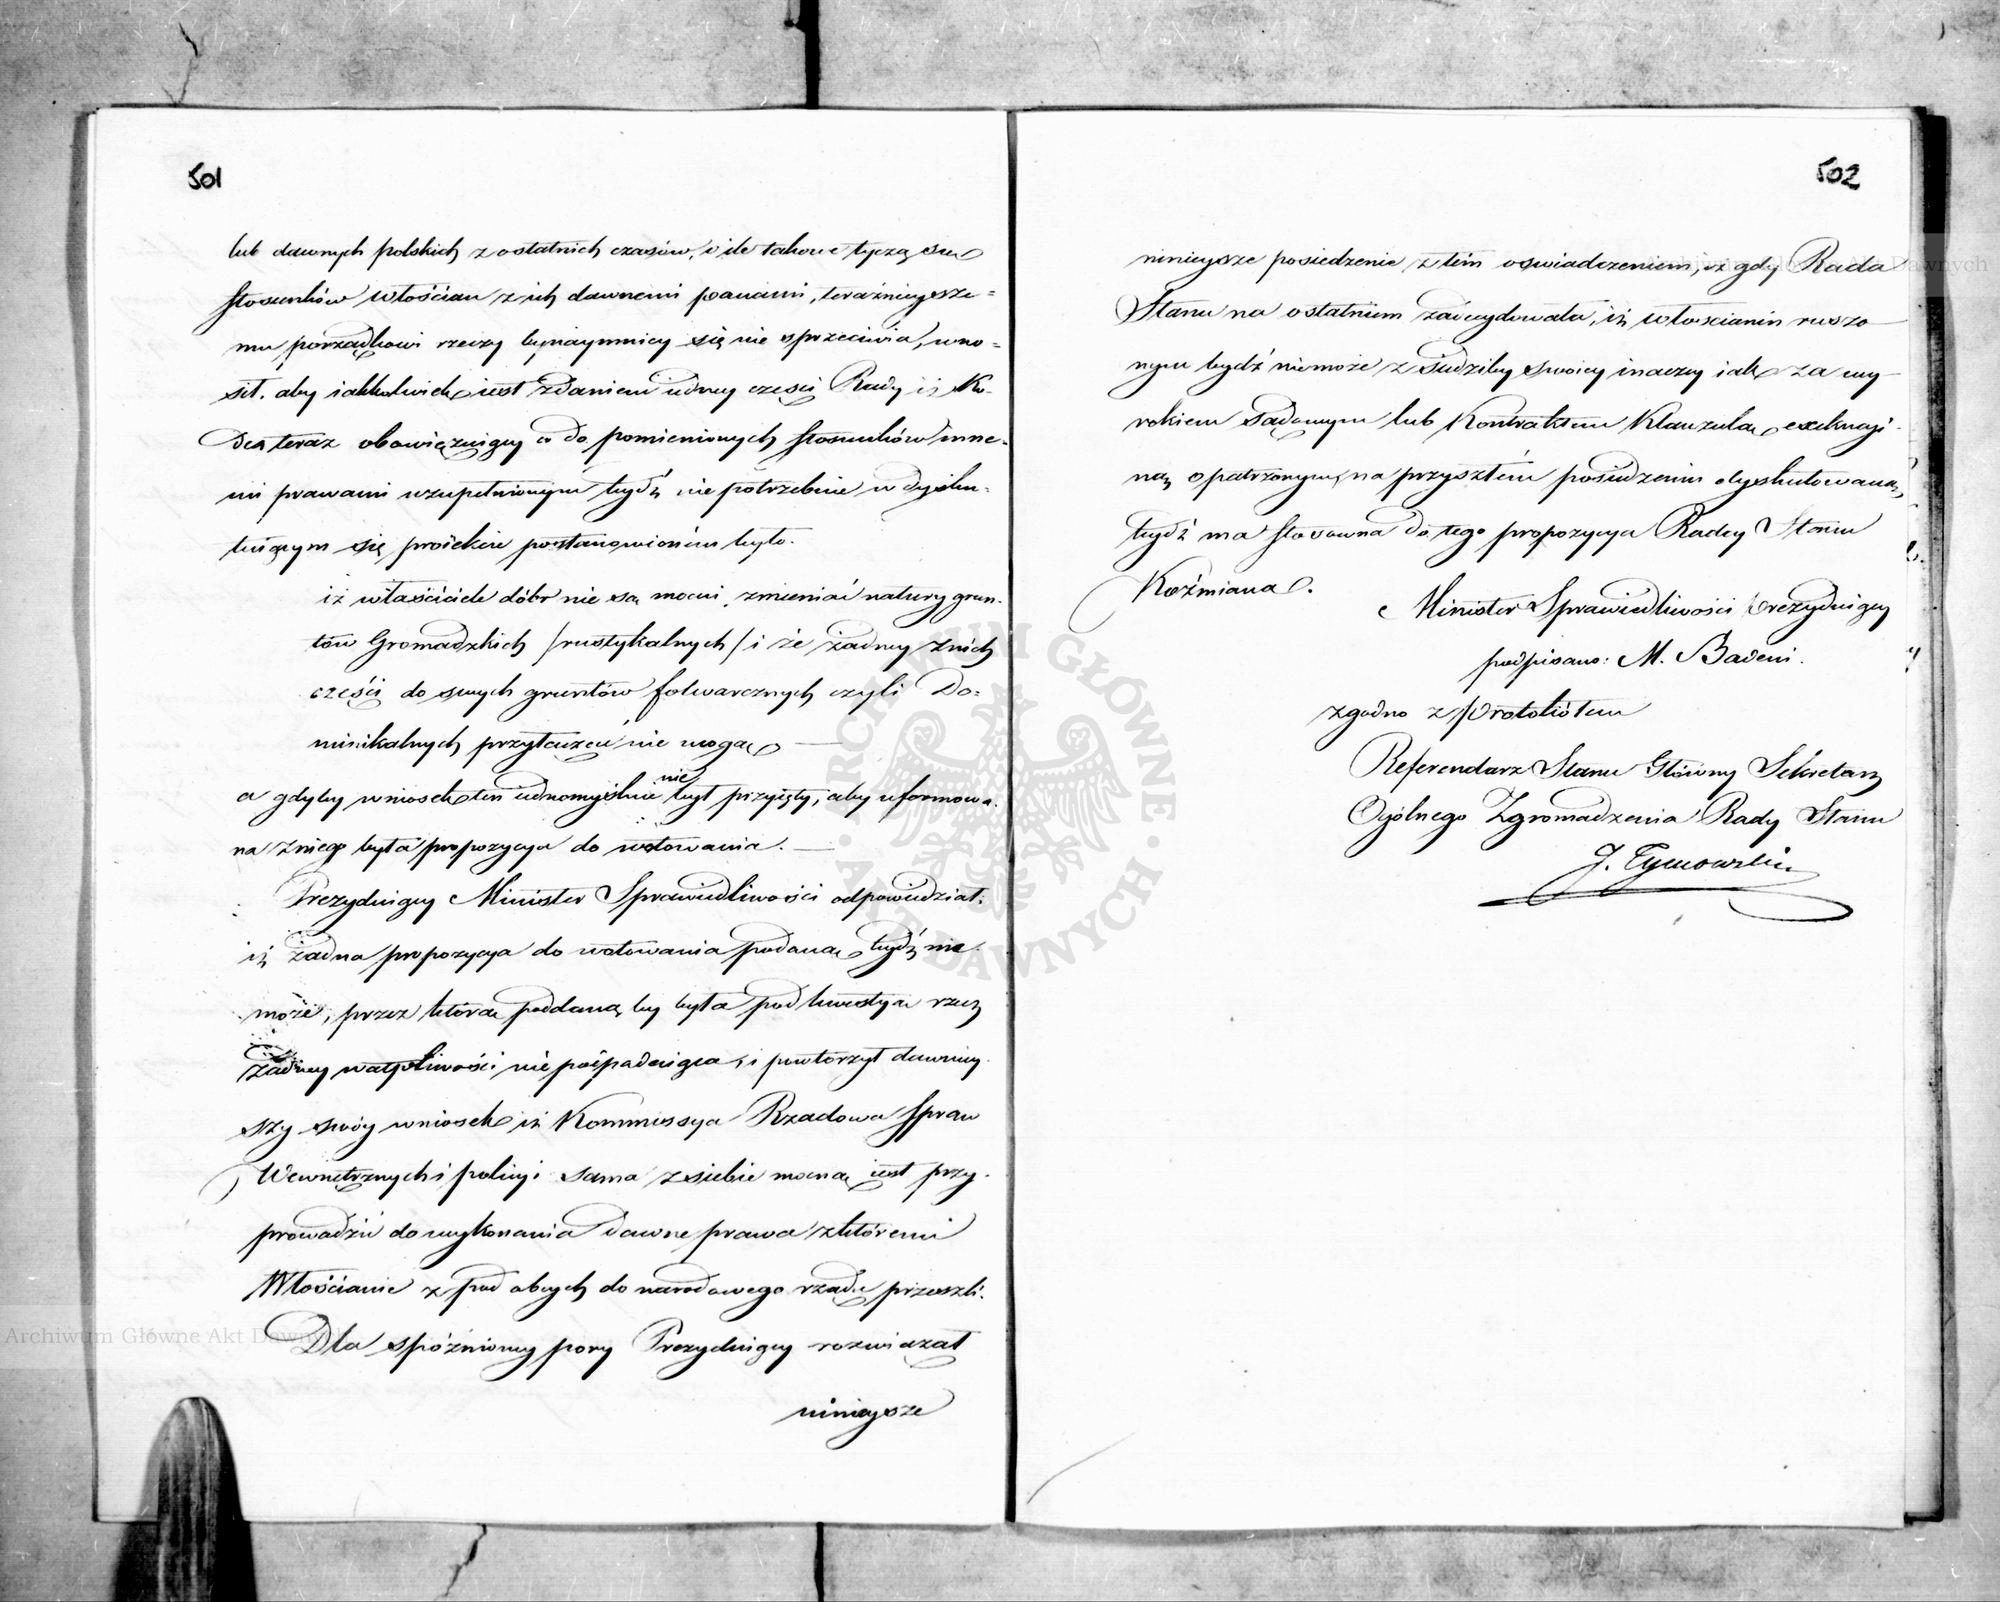 501
lub dawnych polskich z ostatnich czasów, o ile takowe tyczą się
stosunków włościan z ich dawnemi panami, teraźnieysze=
mu porządkowi rzeczy bynaymniey się nie sprzeciwia, wno=
sił. aby iakkolwiek iest zdaniem iedney części Rady iż Ko-
dex teraz obowiązuiący co do pomienionych stosunków inne-
mi prawami uzupełnionym bydź nie potrzebuie w dysku-
tuiącym się proiekcie postanowioném było.
iż właściciele dóbr nie są mocni zmieniać natury grun-
tów Gromadzkich /rustykalnych/ i że żadney z nich
części do swych gruntów folwarcznych czyli Do=
minikalnych przyłączać nie mogą —
a gdyby wniosek ten iednomyślnie nie był przyięty, aby uformowa-
na z niego była propozycya do wotowania. —
Prezyduiący Minister Sprawiedliwości odpowiedział:
iż żadna propozycya do wotowania podaną bydź nie
może, przez którą poddaną by była pod kwestyą rzecz
żadney wątpliwości nie podpadaiąca, i powtórzył dawniey-
szy swóy wniosek iż Kommissya Rządowa Spraw
Wewnętrznych i policyi sama z siebie mocną iest przy-
prowadzić do wykonania dawne prawa z któremi
Włościanie z pod obcych do narodowego rządu przeszli.
Dla spóźnioney pory Prezyduiący rozwiązał
ninieysze
502
ninieysze posiedzenie z tém oświadczeniem, iż gdy Rada
Stanu na ostatniem zadecydowała, iż włościanin ruszo
nym bydź nie może z siedziby swoiey inaczey iak za wy
rokiem sądowym lub Kontraktem Klauzulą exekucyi-
ną opatrzonym, na przyszłém posiedzeniu dyskutowaną
bydź ma stosowna do tego propozycya Radcy Stanu
Koźmiana.
Minister Sprawiedliwości Prezyduiący
podpisano: M. Badeni.
zgodno z Protokółem
Referendarz Stanu Główny Sekretarz
Ogólnego Zgromadzenia Rady Stanu
J. Tymowski
ARCHIWUM GŁÓWNE AKT DAWNYCH
Archiwum Główne Akt Dawnych
Archiwum Główne Akt Dawnych